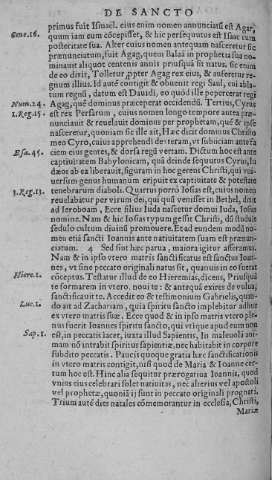 DE SANCTO
primus fuit Ismaël. eius enim nomen annunciauit est Agar,
Gene.16.
quum iam eum cōcepisset, & hic persequutus est Isaac cum
posteritate sua. Alter cuius nomen antequam nasceretur sic
prænunciatum, fuit Agag, quem Balaā in prophetia sua no-
minauit aliquot centenis annis priusquā sit natus, sic enim
de eo dixit, Tolletur ꝓpter Agag rex eius, & auferetur re-
gnum illius. Id autē contigit & obuenit regi Saul, vti abla-
tum regnū, datum est Dauidi, eo quòd ille pepercerat regi
Num.24.
Agag, quē dominus præceperat occidendū. Tertius, Cyrus
1.Reg.15.
est rex Persarum, cuius nomen longo tempore antea præ-
nunciauit & reuelauit dominus per prophetam, quàm & ipse
nasceretur, quoniam sic ille ait, Hæc dicit dominus Christo
meo Cyro, cuius apprehendi dexteram, vt subiiciam ante fa
Esa.45.
ciem eius gentes, & dorsa regū vertam. Dictum hoc est ante
captiuitatem Babylonicam, quà deinde sequutus Cyrus, Iu
dæos ab ea liberauit, figuram in hoc gerens Christi, qui vni-
uersum genus humanum eripuit ex captiuitate & potestate
3.Reg.13.
tenebrarum diaboli. Quartus porrò Iosias est, cuius nomen
reuelabatur per virum dei, qui quū venisset in Bethel, dixit
ad Ieroboam, Ecce filius Iuda nascetur domui Iuda, Iosias
nomine. Nam & hic Iosias typum gessit Christi, dū studuit
sedulo cultum diuinū promouere. Et ad eundem modū no-
men etiā sancti Ioannis ante natiuitatem suam est prænun-
ciatum. 4 Sed sint hæc parua, maiora aggrediamur iterum.
Nam & in ipso vtero matris sanctificatus est sanctus Ioan-
nes, vt sine peccato originali natus sit, quanuis in eo fuerit
Hiere.1.
conceptus. Testatur illud de eo Hieremias, dicens, Priusquā
te formarem in vtero, noui te: & antequā exires de vulua,
sanctificaui te. Accedit eo & testimonium Gabrielis, quan-
Luc.1.
do ait ad Zachariam, quia spiritu sancto implebitur adhuc
ex vtero matris suæ. Ecce quod & in ipso matris vtero ple-
nus fuerit Ioannes spiritu sancto, qui vtique apud eum non
Sap.1.
est, in peccatis iacet, iuxta illud Sapientis, In maleuolā ani-
mam nō intrabit spiritus sapientiæ, nec habitabit in corpore
subdito peccatis. Paucis quoque gratia hæc sanctificationis
in vtero matris contigit, nisi quod de Maria & Ioanne cer-
tum hoc est. Hinc alia sequitur prærogatiua Ioannis, quod
vnius eius celebrari solet natiuitas, nec alterius vel apostoli
vel prophetæ, quoniā ij sunt in peccato originali prognati.
Trium autē dies natales cōmemorantur in ecclesia, Christi,
Mariæ